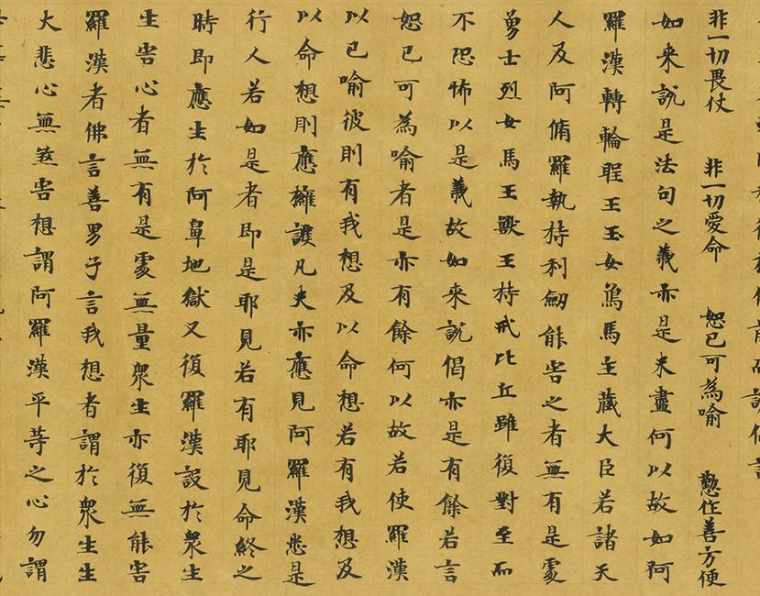 非一切畏仗　非一切愛命　恕己可為喻　懃住善方便
如来說是法句之義亦是未盡何以故如阿
羅漢轉輪聖王玉女象馬主藏大臣若諸天
人及阿脩羅執持利劒能害之者無有是處
勇士烈女馬王獸王持戒比丘雖復對至而
不恐怖以是義故如来說偈亦是有餘若言
恕己可為喻者是亦有餘何以故若使羅漢
以己喻彼則有我想及以命想若有我想及
以命想則應擁護凡夫亦應見阿羅漢悉是
行人若如是者即是耶見若有耶見命終之
時即應生於阿鼻地獄又復羅漢設於衆生
生害心者無有是處無量衆生亦復無能害
羅漢者佛言善男子言我想者謂於衆生生
大悲心無煞害想謂阿羅漢平等之心勿謂